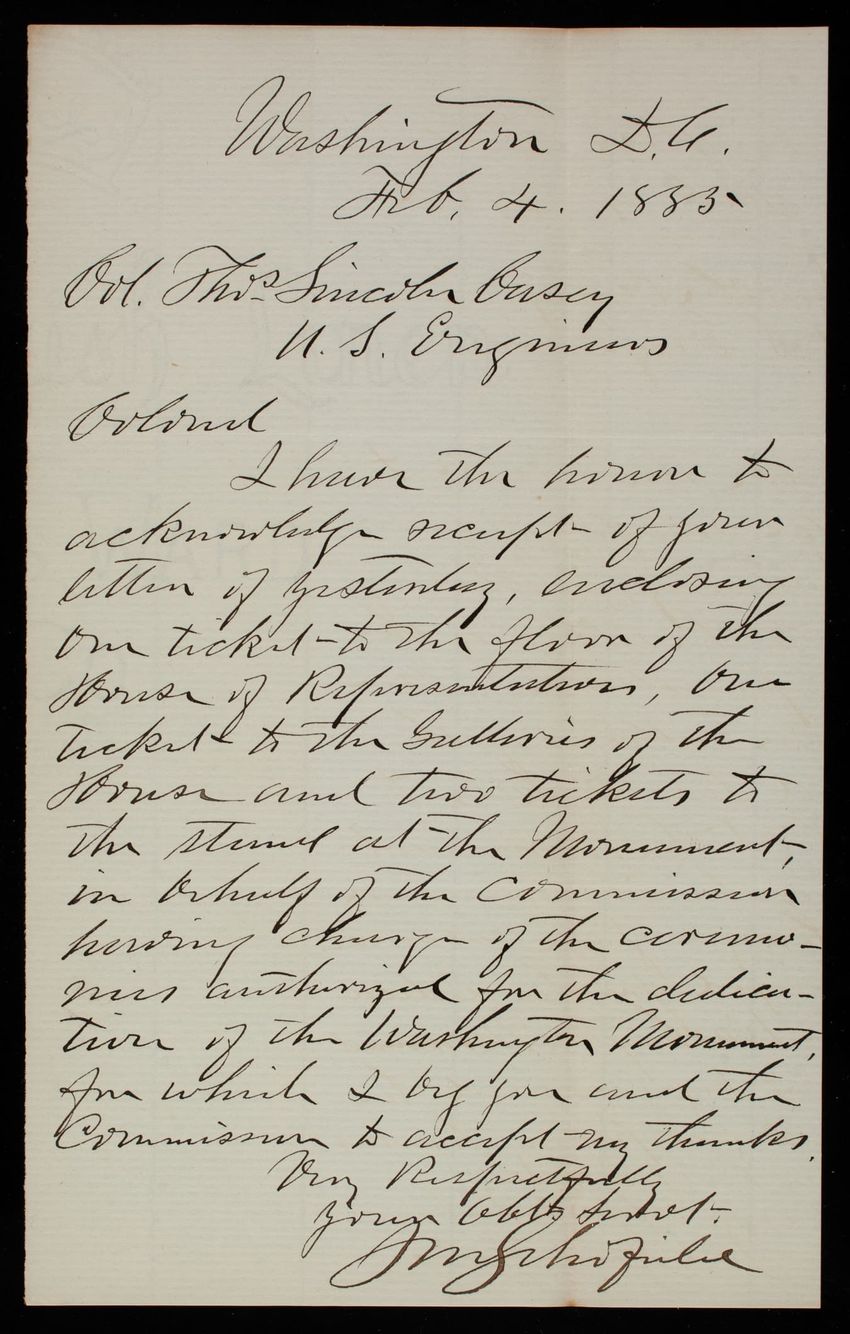 Washington D.C.
Feb. 4. 1885
Col. Thos. Lincoln Casey
U. S. Engineers
Colonel
I have the honor to
acknowledge receipt of your
letter of yesterday, enclosing
one ticket to the floor of the
House of Representatives, one
ticket to the Galleries of the
House and two tickets to
the stand at the Monument,
in behalf of the Commission
having charge of the ceremo-
nies authorized for the dedica-
tion of the Washington Monument,
for which I beg you and the
Commission to accept my thanks.
Very Respectfully
your Obt. Servt.
J M Schofield